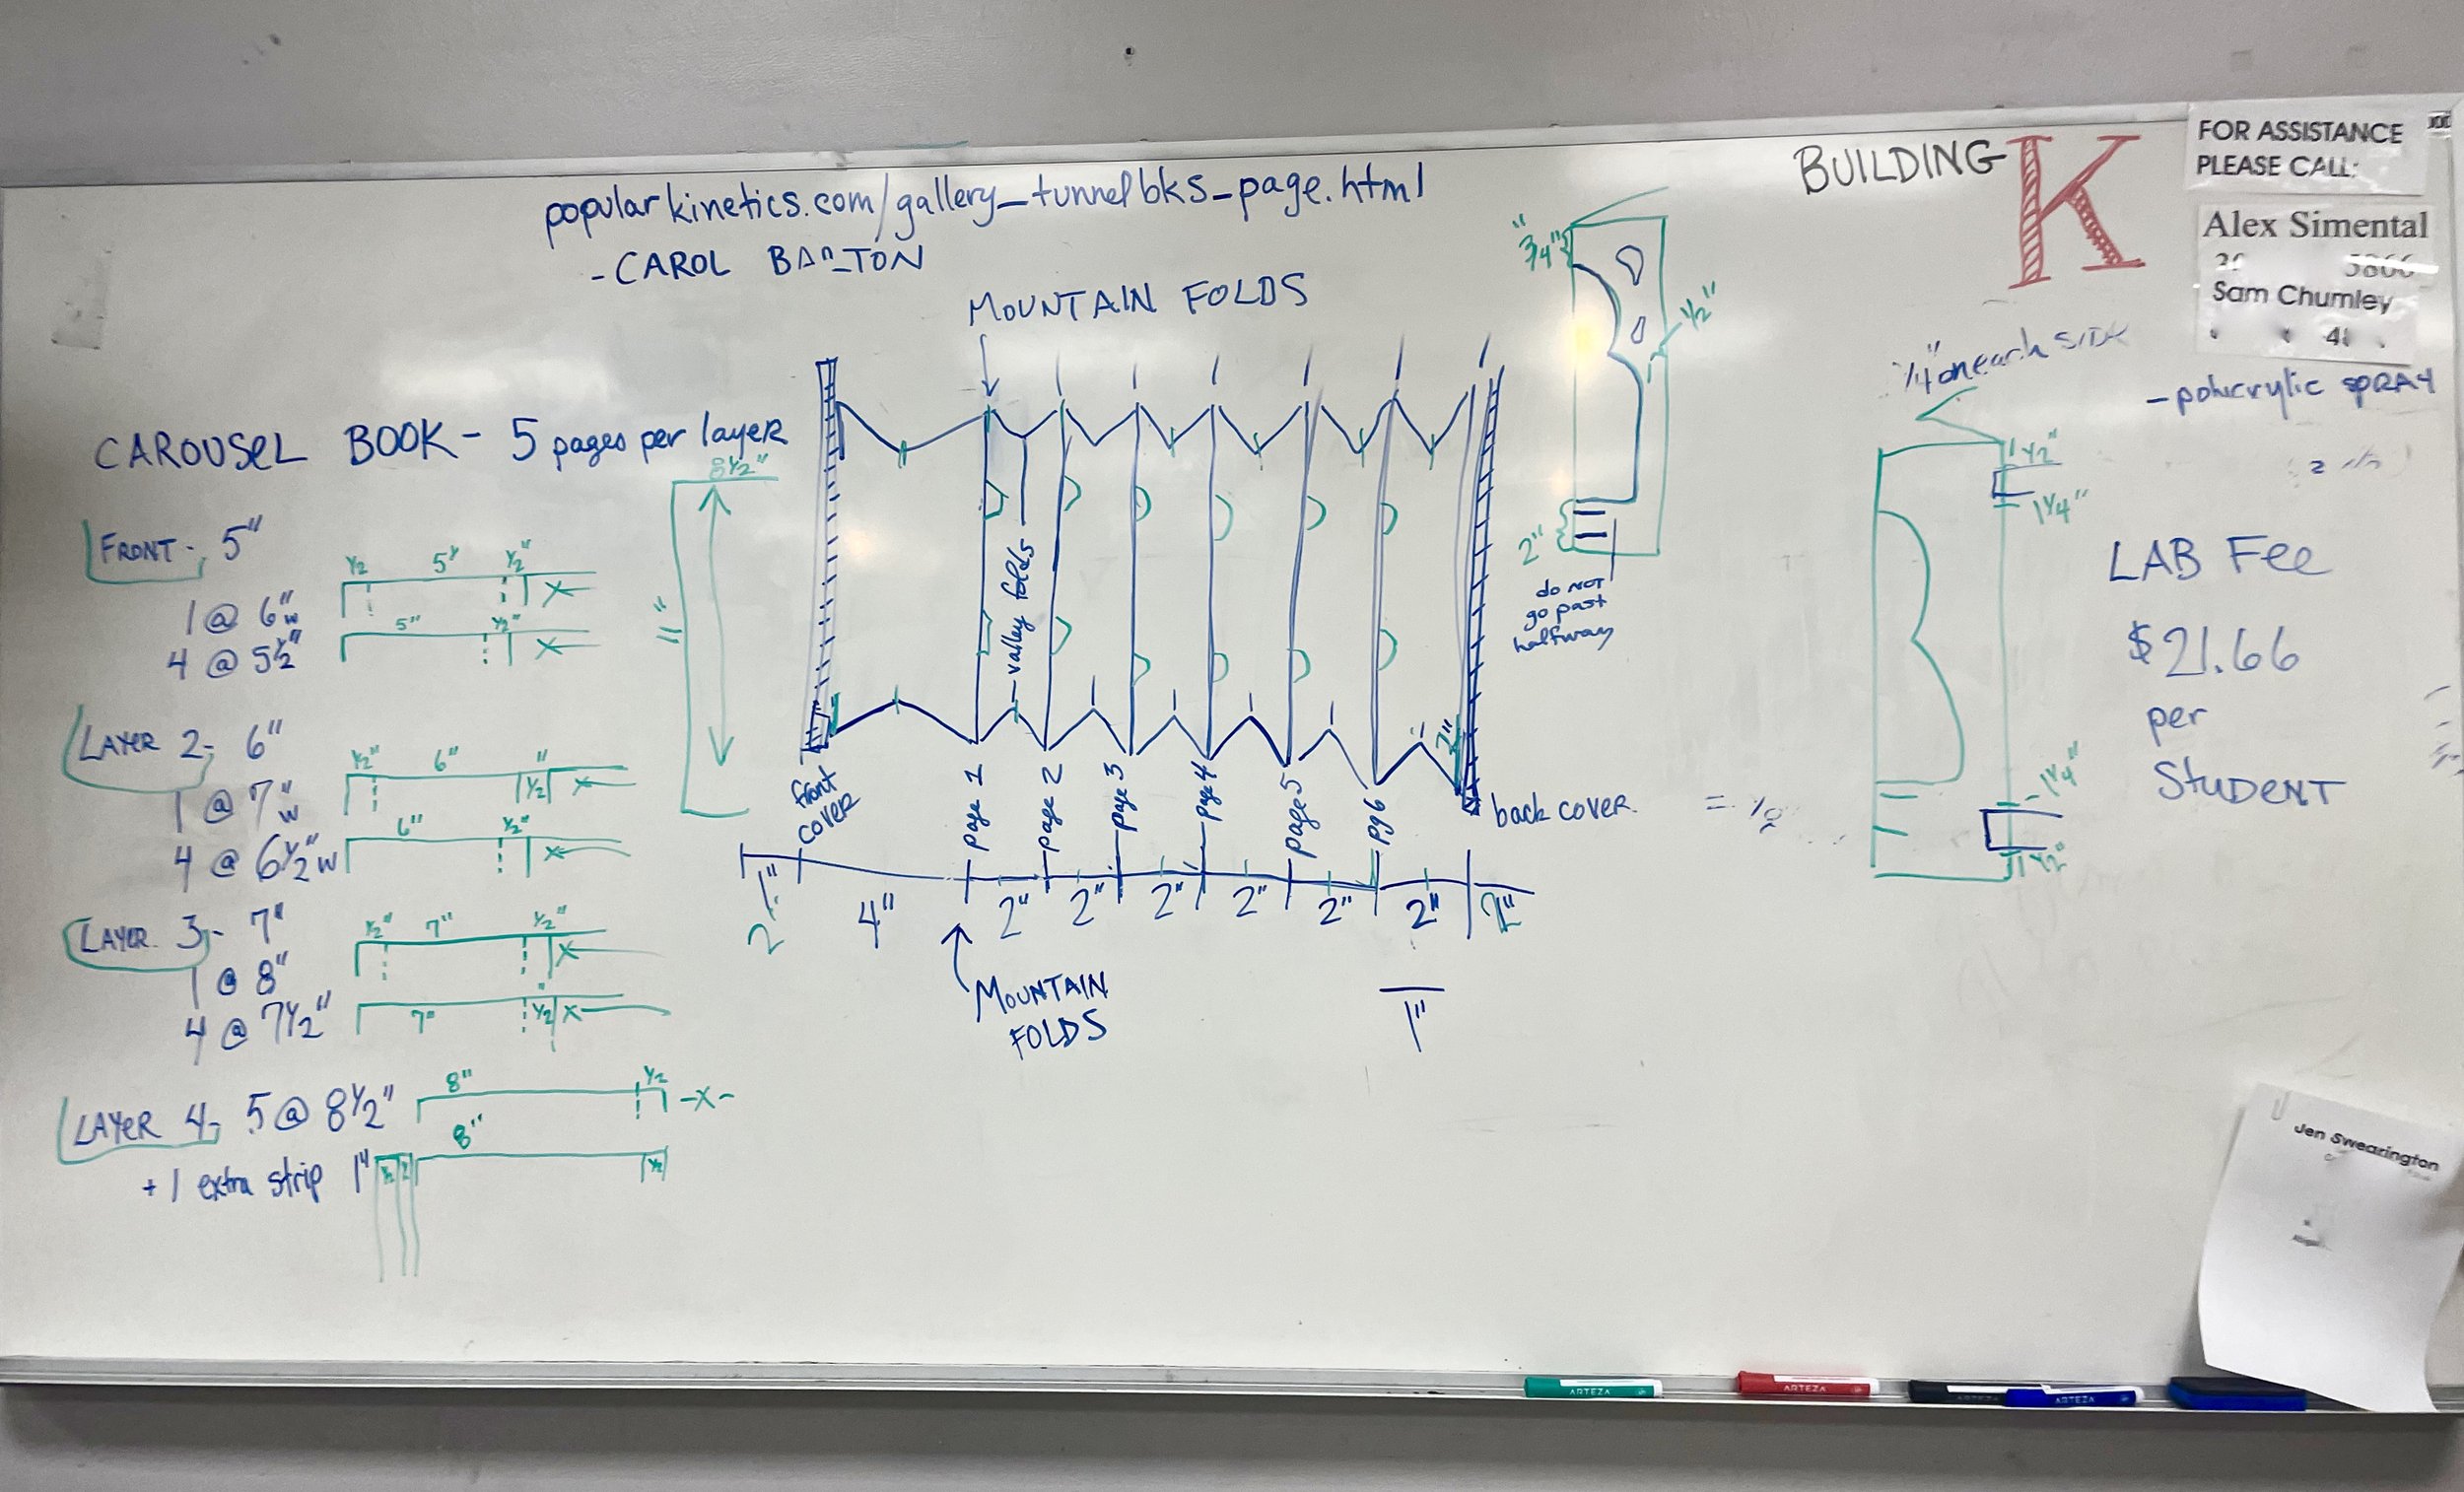 popularkinetics.com/gallery_tunnelbks_page.html
- CAROL
MOUNTAIN FOLDS
CAROUSEL BOOK - 5 pages per layer
FRONT - 5"
1 @ 6" w
4 @ 5½"
½ 5" ½"
5" ½"
LAYER 2- 6"
1 @ 7" w
4 @ 6½" w
½" 6" ½"
6" ½"
LAYER 3- 7"
1 @ 8"
4 @ 7½"
½" 7" ½"
7" ½
LAYER 4- 5 @ 8½"
+ 1 extra strip 1"
8" ½ -X-
8" ½
8½"
valley folds
front cover
page 1
page 2
page 3
page 4
page 5
pg 6
back cover
1" 4" 2" 2" 2" 2" 2" 2"
2"
MOUNTAIN
FOLDS
1"
¾"
½"
2"
do NOT
go past
halfway
BUILDING K
FOR ASSISTANCE
PLEASE CALL:
Alex Simental
Sam Chumley
¼" on each side
- polycrylic SPRAY
1½"
1¼"
1¼"
1½"
LAB Fee
$21.66
per
STUDENT
Jen Swearington
ARTEZA
ARTEZA
ARTEZA
ARTEZA